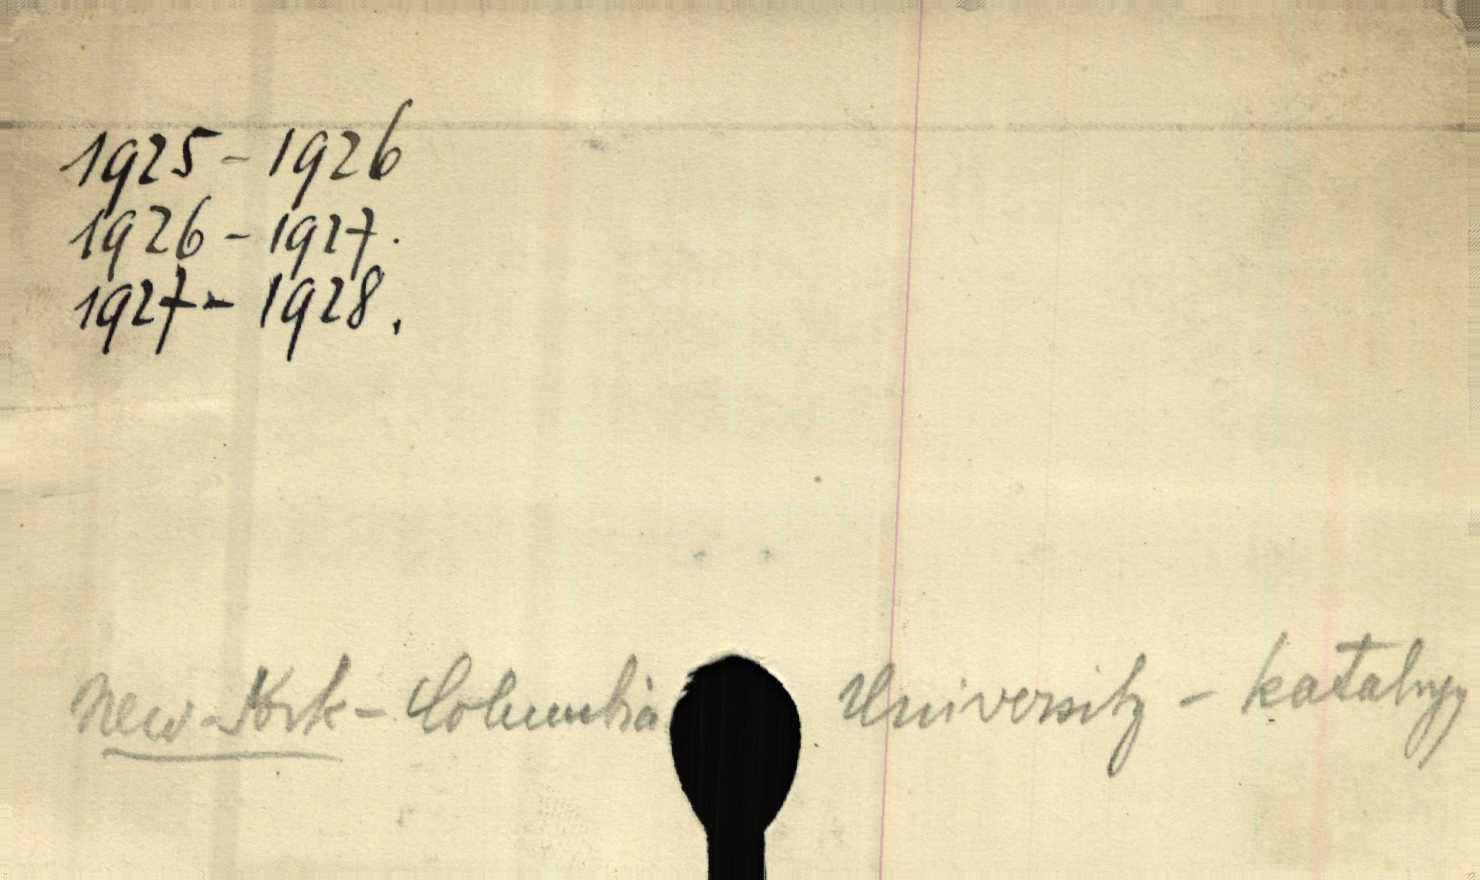 1925-1926
1926-1927.
1927-1928.
New-York-Columbia University - katalogy